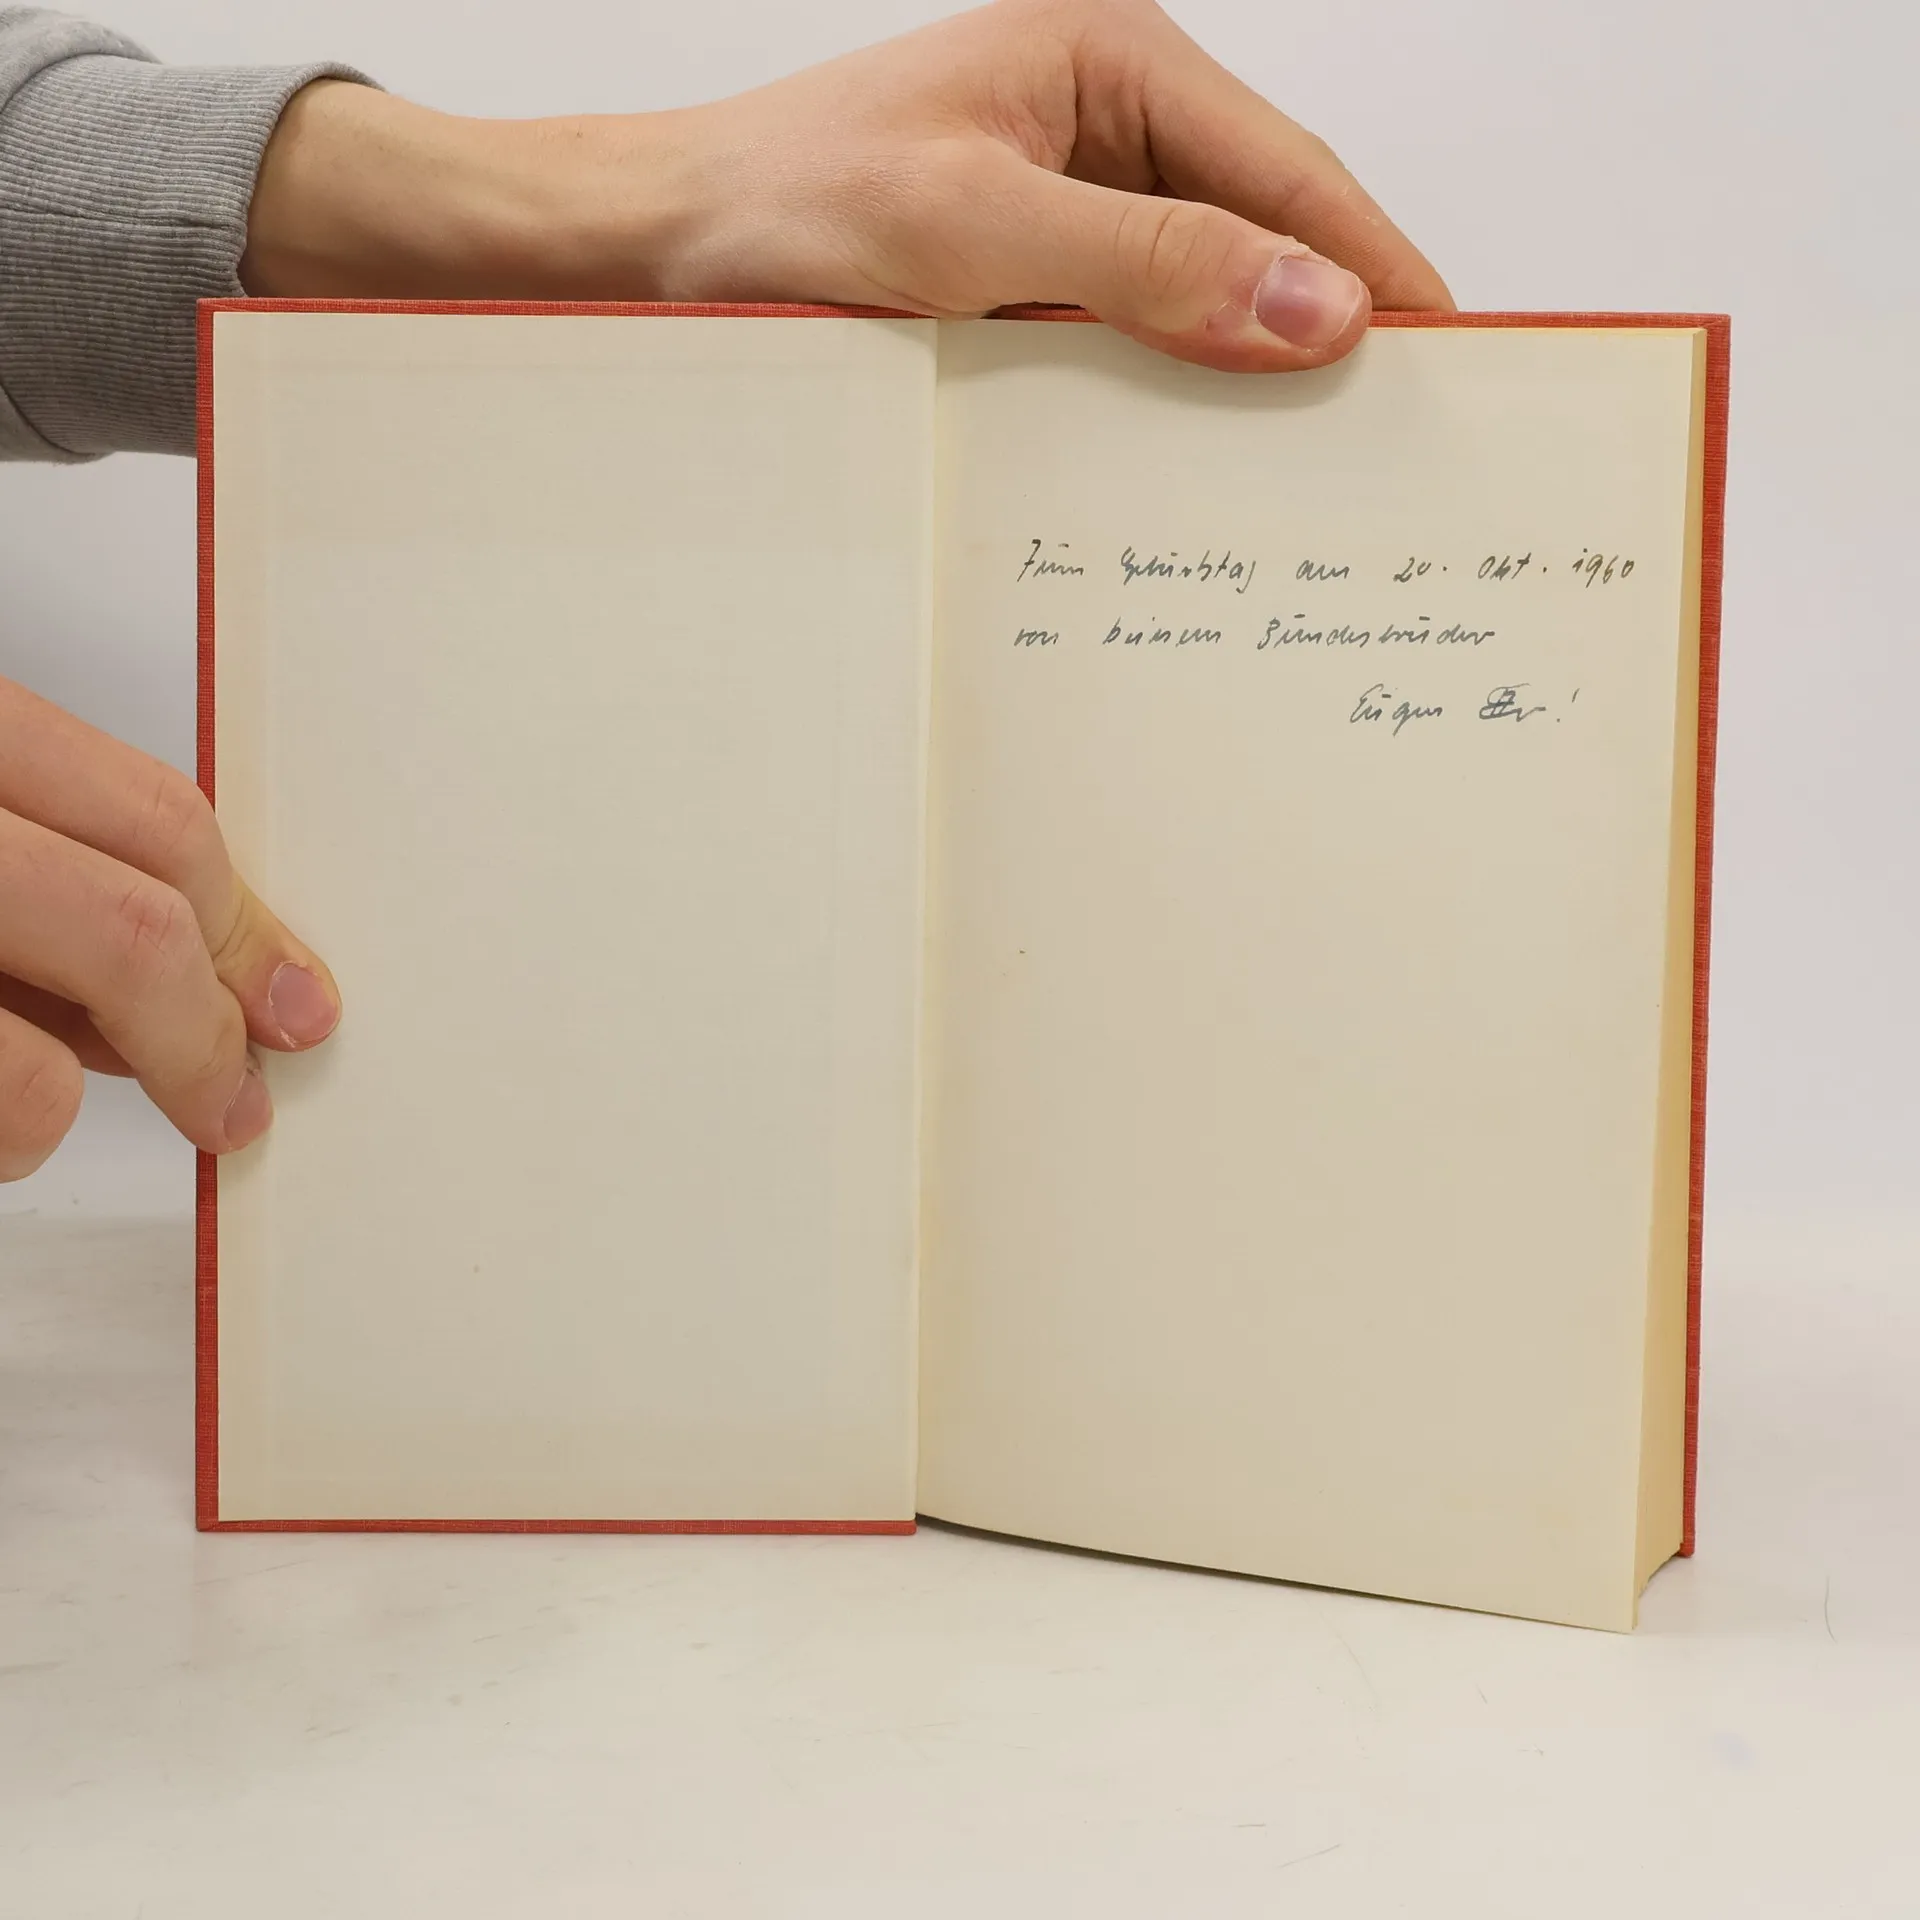 Zum Geburtstag am 20. Okt. 1960
von deinem Bundesbruder
Eugen